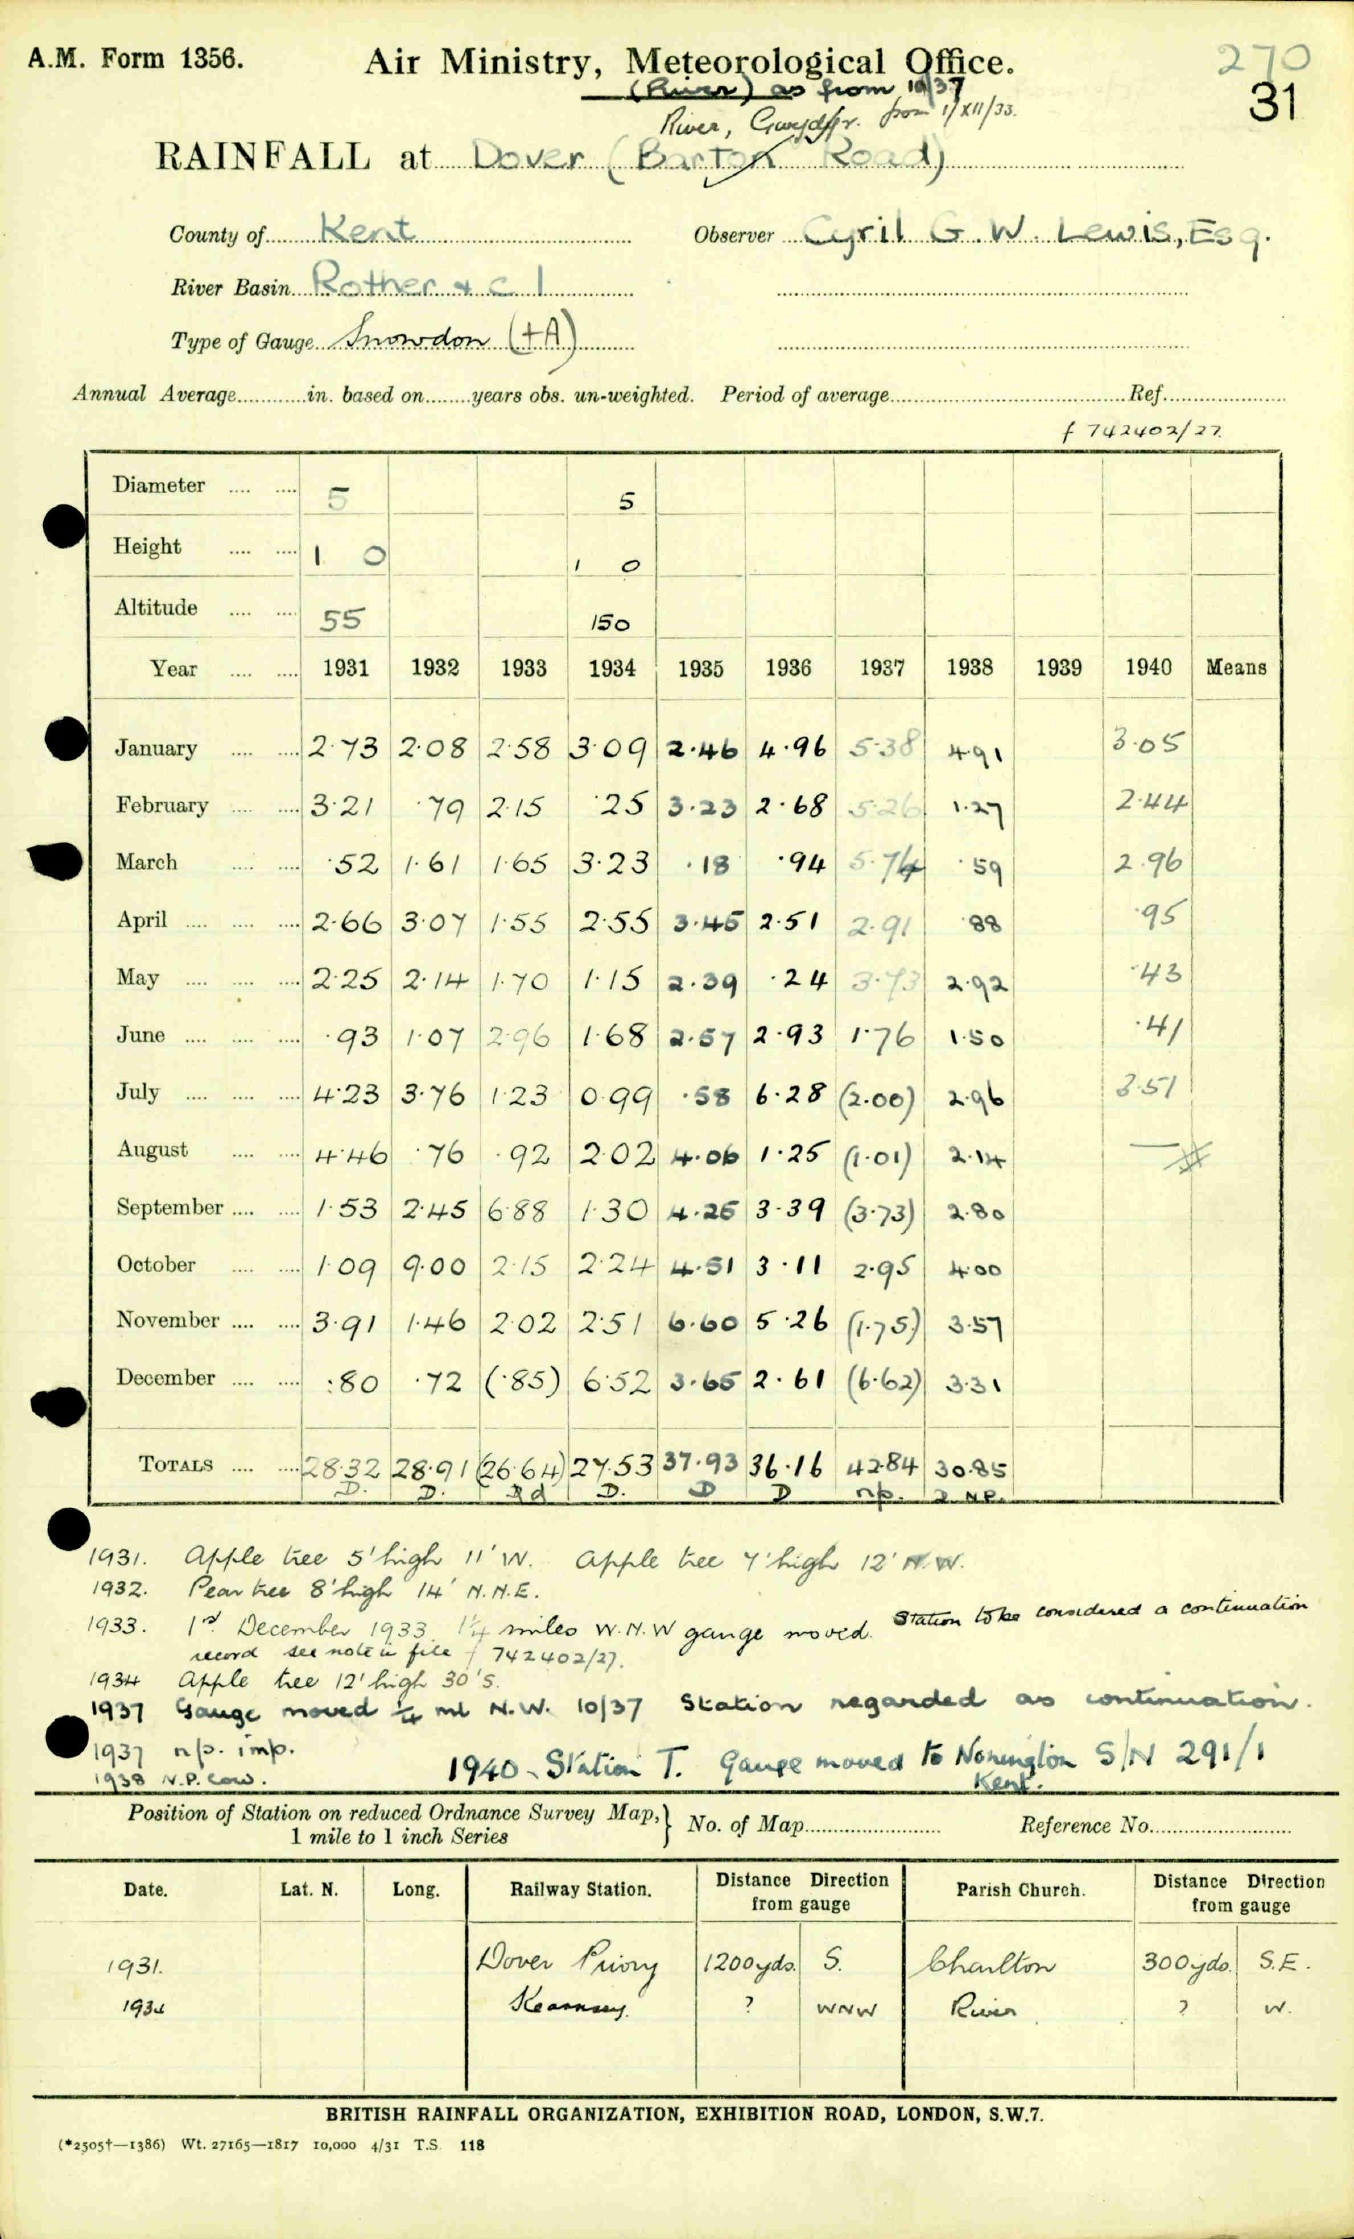 A.M. Form 1356.
Air Ministry, Meteorological Office.
270
31
(River) as from 10/37
River, Gwydyr. from 1/XII/33.
RAINFALL at Dover (Barton Road)
County of Kent Observer Cyril G. W. Lewis, Esq.
River Basin Rother & c 1
Type of Gauge Snowdon (+A)
Annual Average............in. based on........years obs. un-weighted. Period of average.................... Ref...............
f 742402/27.
Diameter .... .... 5 5
Height .... .... 1 0 1 0
Altitude .... .... 55 150
Year .... .... 1931 1932 1933 1934 1935 1936 1937 1938 1939 1940 Means
January .... .... 2·73 2·08 2·58 3·09 2·46 4·96 5·38 4·91 3·05
February .... .... 3·21 ·79 2·15 ·25 3·23 2·68 5·26 1·27 2·44
March .... .... ·52 1·61 1·65 3·23 ·18 ·94 5·74 ·59 2·96
April .... .... .... 2·66 3·07 1·55 2·55 3·45 2·51 2·91 ·88 ·95
May .... .... .... 2·25 2·14 1·70 1·15 2·39 ·24 3·73 2·92 ·43
June .... .... .... ·93 1·07 2·96 1·68 2·57 2·93 1·76 1·50 ·41
July .... .... .... 4·23 3·76 1·23 0·99 ·58 6·28 (2·00) 2·96 3·51
August .... .... 4·46 ·76 ·92 2·02 4·06 1·25 (1·01) 2·14 —
September .... .... 1·53 2·45 6·88 1·30 4·25 3·39 (3·73) 2·80
October .... .... 1·09 9·00 2·15 2·24 4·51 3·11 2·95 4·00
November .... .... 3·91 1·46 2·02 2·51 6·60 5·26 (1·75) 3·57
December .... .... ·80 ·72 (·85) 6·52 3·65 2·61 (6·62) 3·31
TOTALS .... .... 28·32 28·91 (26·64) 27·53 37·93 36·16 42·84 30·85
D. D. Rd D. D D np. D N.P.
1931. Apple tree 5' high 11' W. Apple tree 7' high 12' N.W.
1932. Pear tree 8' high 14' N.N.E.
1933. 1st December 1933 1¼ miles W.N.W gauge moved. Station to be considered a continuation
record see note in file f 742402/27.
1934 Apple tree 12' high 30' S.
1937 Gauge moved ¼ ml N.W. 10/37 Station regarded as continuation.
1937 n/p. imp.
1938 N.P. Cow.
1940 - Station T. Gauge moved to Nonington S/N 291/1
Kent.
Position of Station on reduced Ordnance Survey Map,} No. of Map............ Reference No............
1 mile to 1 inch Series
Date. Lat. N. Long. Railway Station. Distance Direction from gauge Parish Church. Distance Direction from gauge
1931. Dover Priory 1200yds. S. Charlton 300yds. S.E.
1934 Kearsney. ? WNW River ? W.
BRITISH RAINFALL ORGANIZATION, EXHIBITION ROAD, LONDON, S.W.7.
(*2505†—1386) Wt. 27165—1817 10,000 4/31 T.S. 118